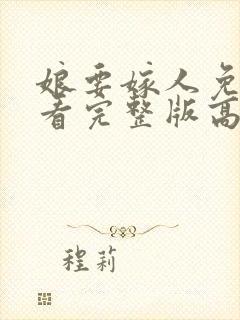 娘要嫁人免
看完整版高
程莉